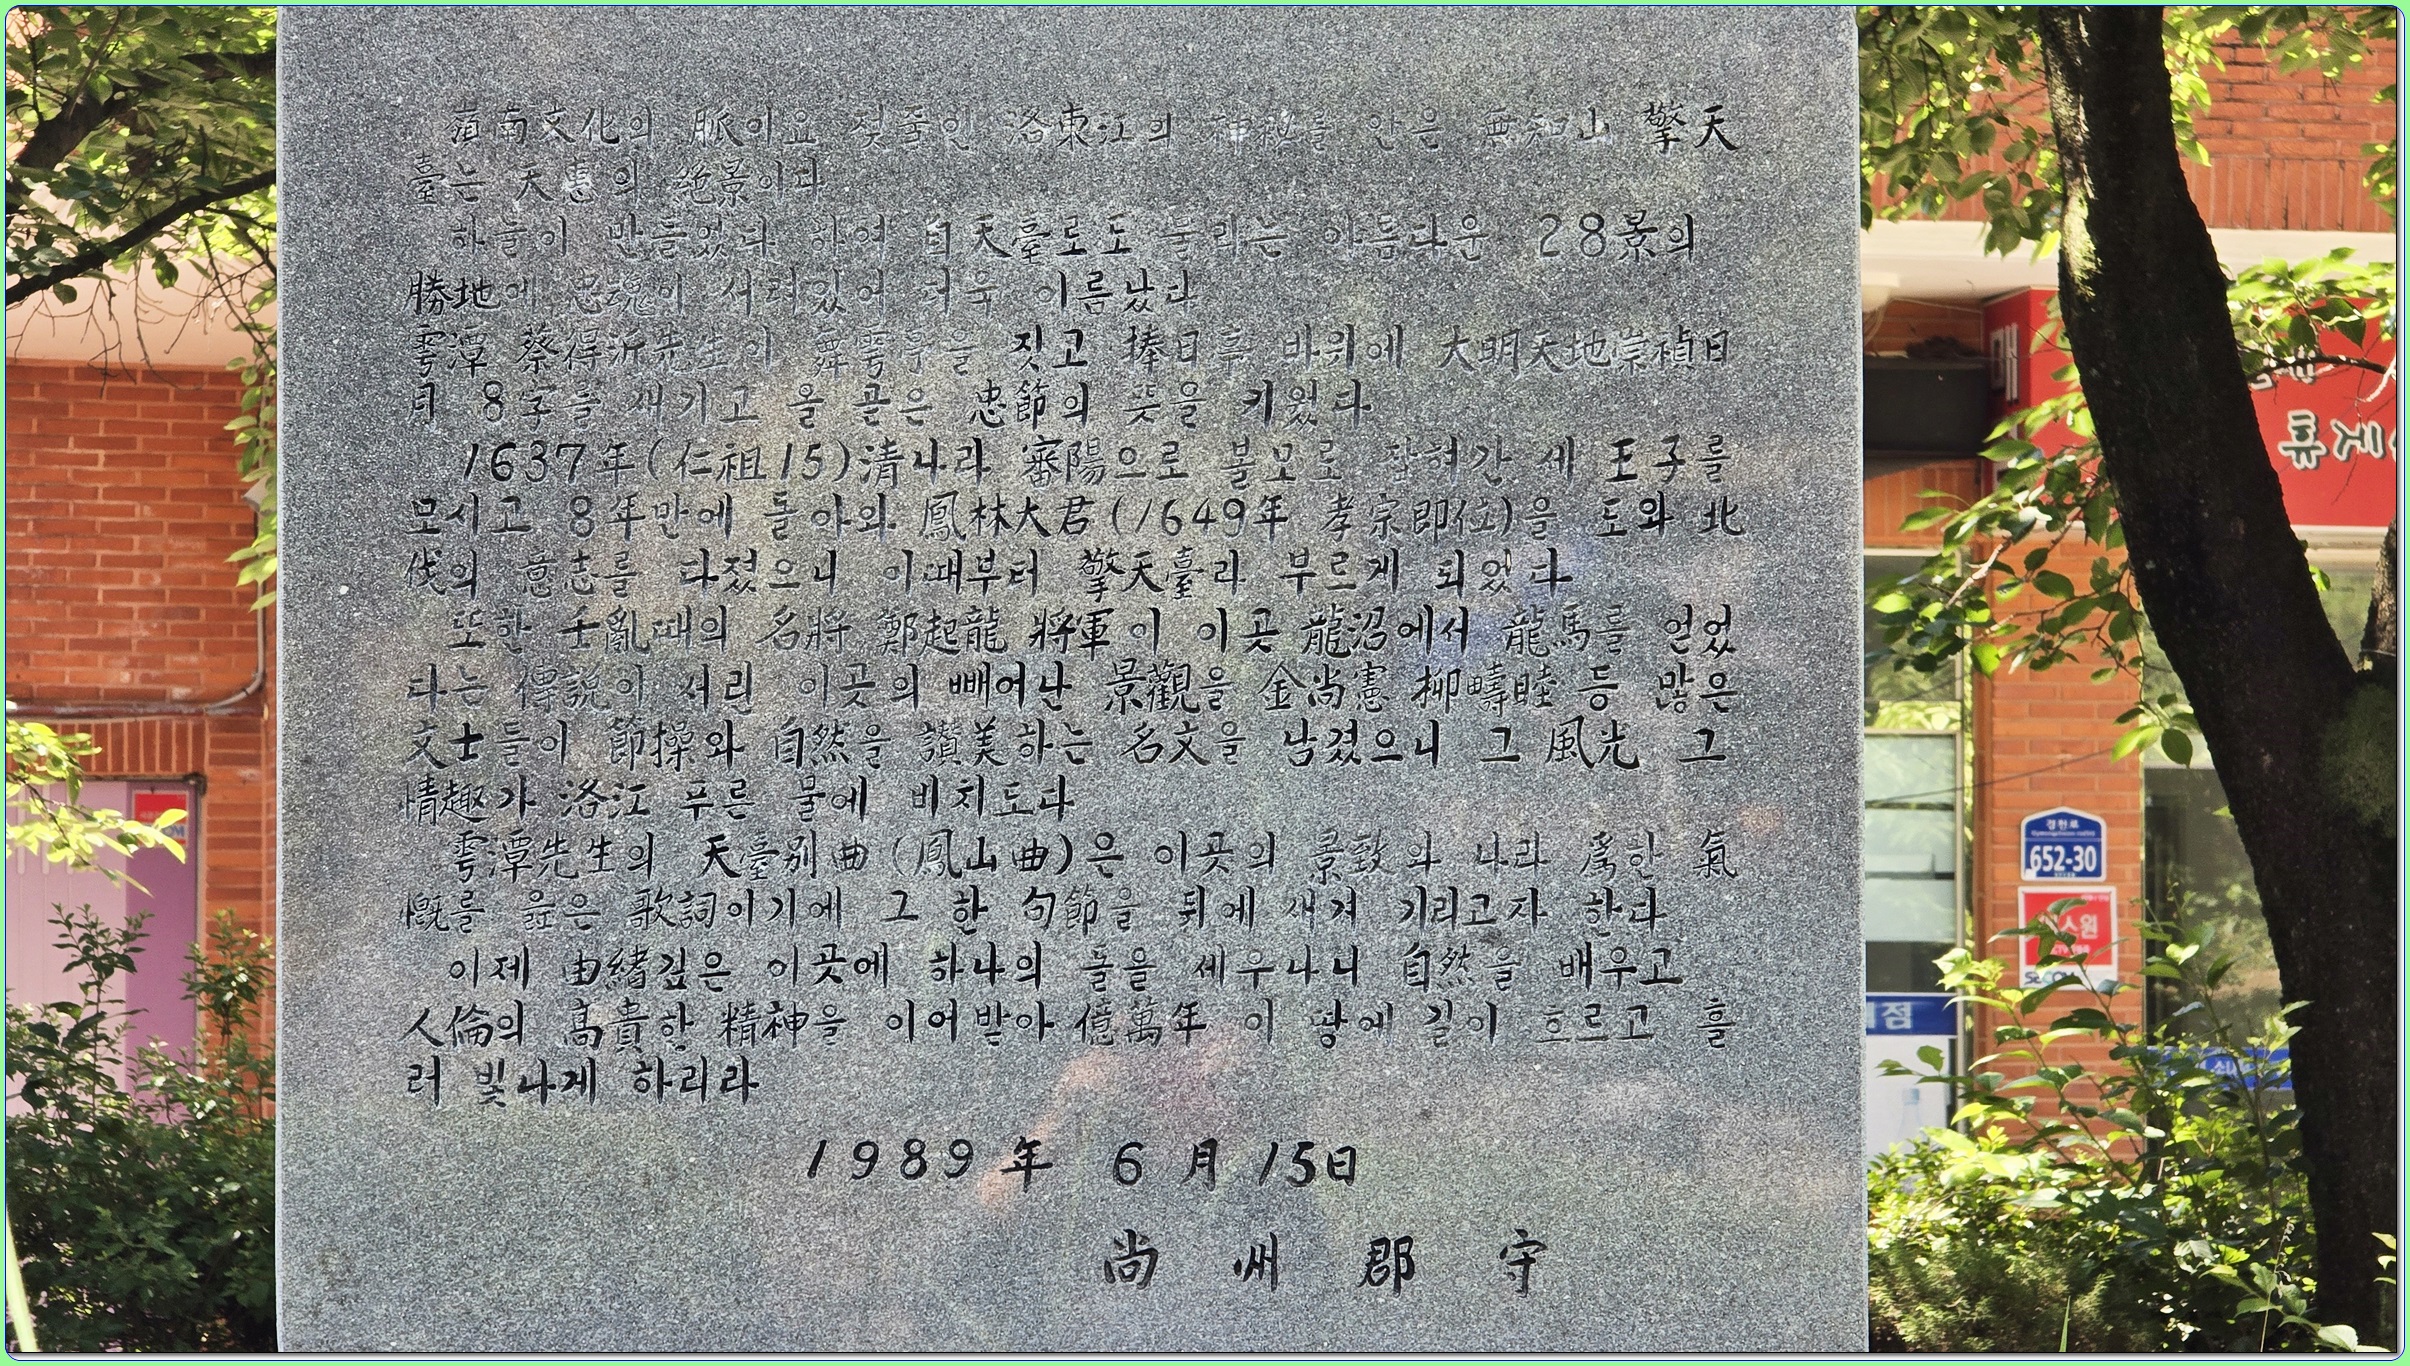 嶺南文化의 脈이요 젖줄인 洛東江의 神秘를 안은 無知山 擎天
臺는 天惠의 絶景이다
하늘이 만들었다 하여 自天臺로도 불리는 아름다운 28景의
勝地에 忠魂이 서려있어 더욱 이름났다
雩潭 蔡得沂先生이 舞雩亭을 짓고 捧日亭 바위에 大明天地崇禎日
月 8字를 새기고 올곧은 忠節의 뜻을 키웠다
1637年(仁祖15)清나라 審陽으로 볼모로 잡혀간 세 王子를
모시고 8年만에 돌아와 鳳林大君(1649年 孝宗即位)을 도와 北
伐의 意志를 다졌으니 이때부터 擎天臺라 부르게 되었다
또한 壬亂때의 名將 鄭起龍 將軍이 이곳 龍沼에서 龍馬를 얻었
다는 傳說이 서린 이곳의 빼어난 景觀을 金尙憲 柳疇睦 등 많은
文士들이 節操와 自然을 讚美하는 名文을 남겼으니 그 風光 그
情趣가 洛江 푸른 물에 비치도다
雩潭先生의 天臺別曲(鳳山曲)은 이곳의 景致와 나라 爲한 氣
慨를 읊은 歌詞이기에 그 한 句節을 뒤에 새겨 기리고자 한다
이제 由緖깊은 이곳에 하나의 돌을 세우나니 自然을 배우고
人倫의 高貴한 精神을 이어받아 億萬年 이 땅에 길이 흐르고 흘
러 빛나게 하리라
1989年 6月 15日
尙州郡守
경천로
652-30